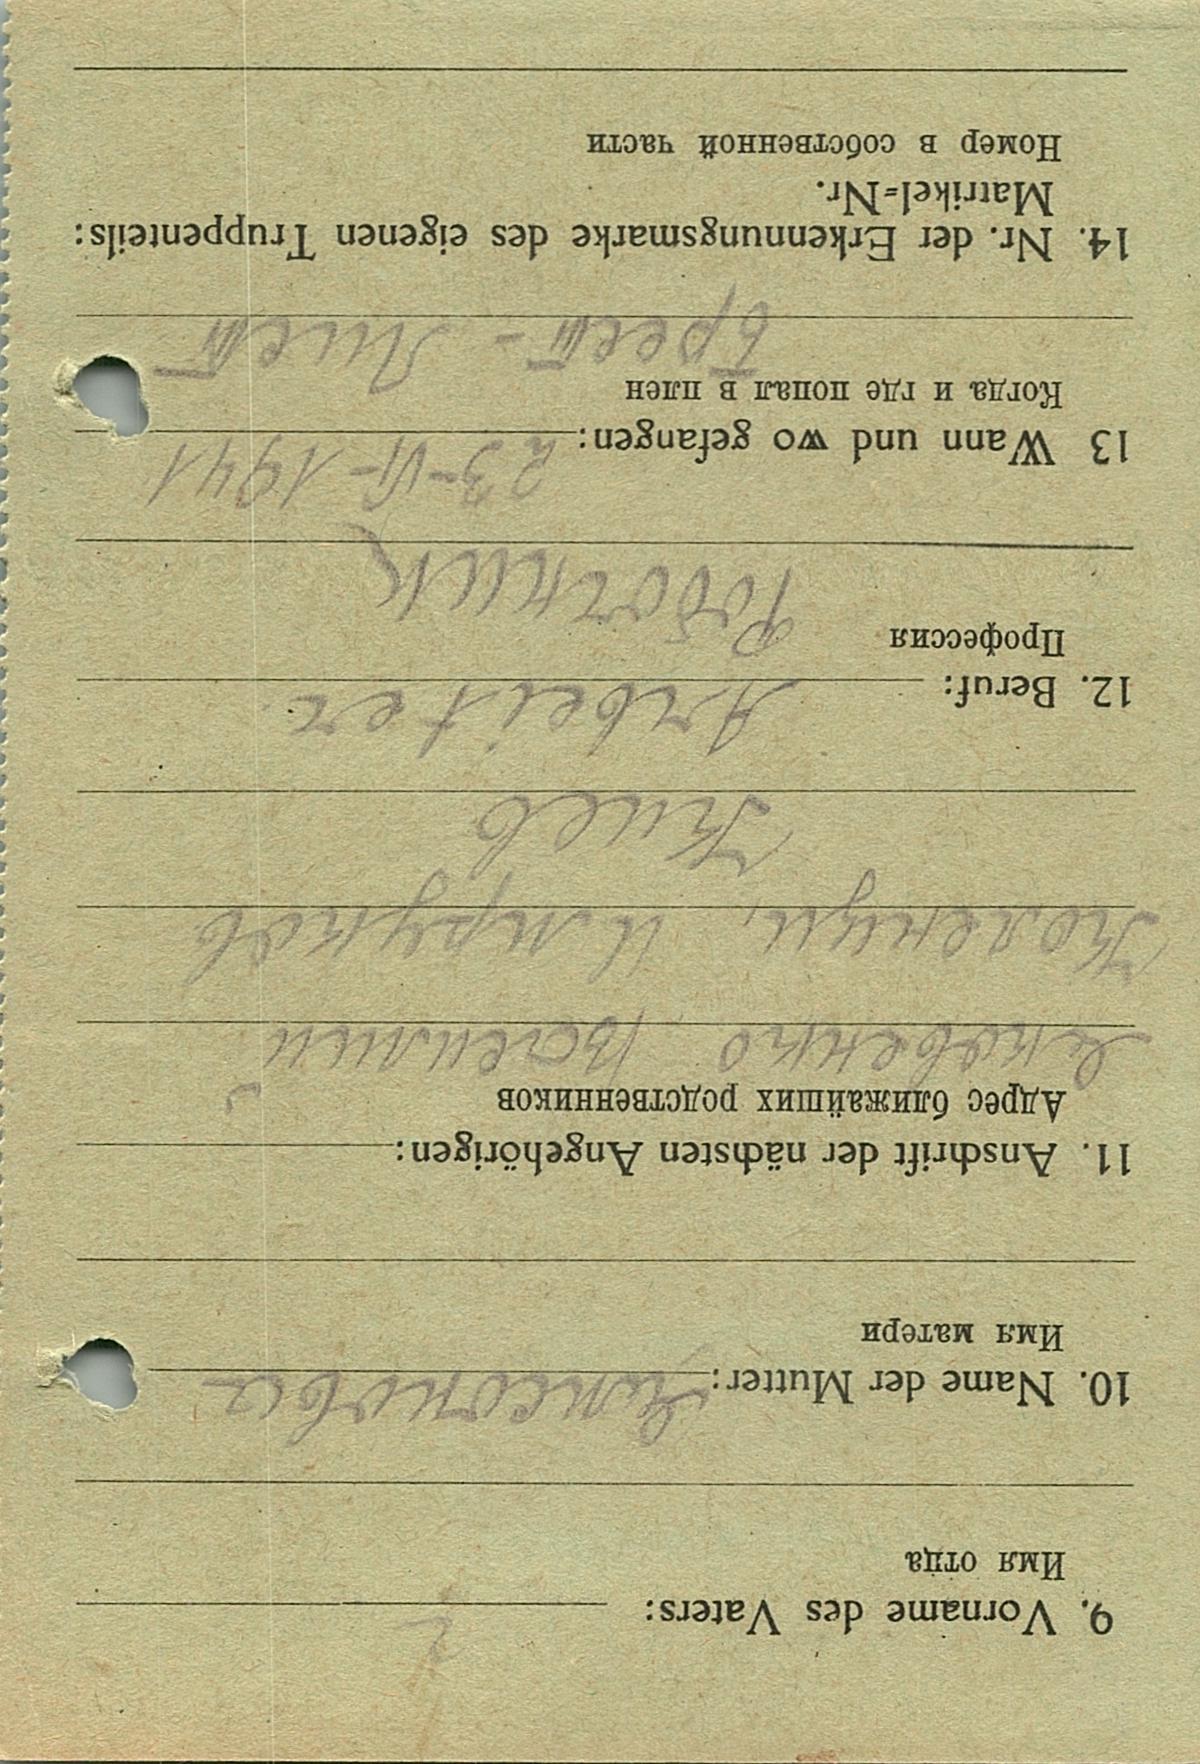 9. Vorname des Vaters:
Имя отца
10. Name der Mutter:
Имя матери
11. Anschrift der nächsten Angehörigen:
Адрес ближайших родственников
Василий
Киев
12. Beruf: Arbeiter
Профессия
Роботник
13 Wann und wo gefangen: 23-VI-1941
Когда и где попал в плен
Брест-Лист
14. Nr. der Erkennungsmarke des eigenen Truppenteils:
Matrikel=Nr.
Номер в собственной части